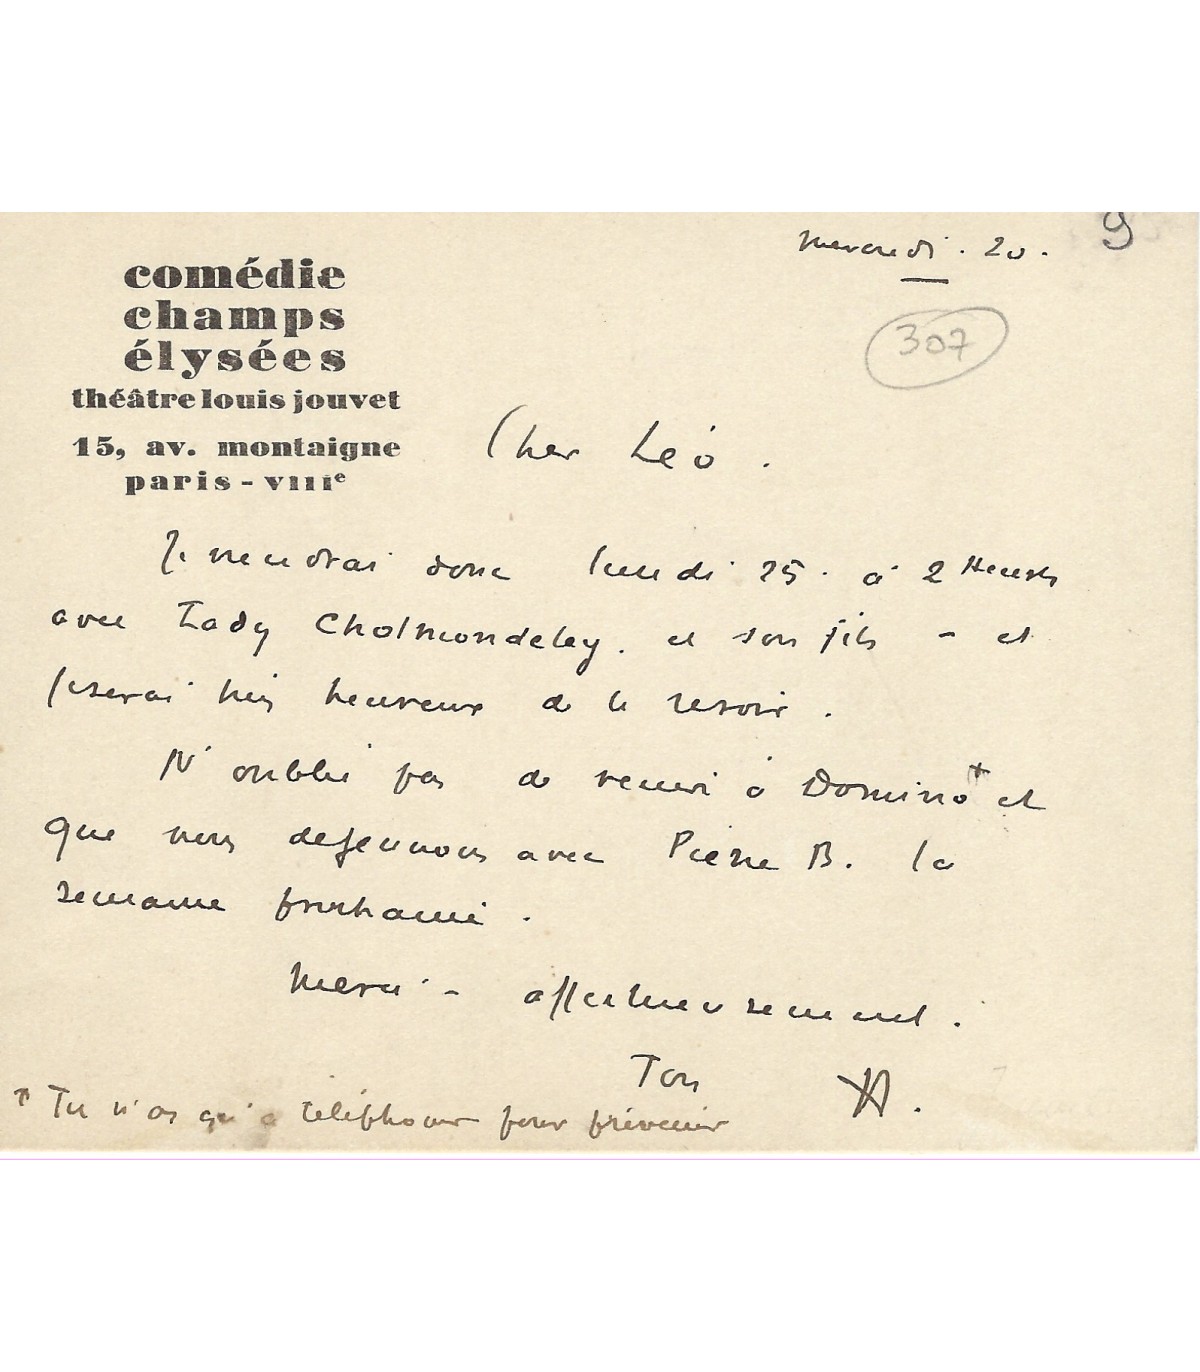 mercredi . 20 .
9
307
comédie
champs
élysées
théâtre louis jouvet
15, av. montaigne
paris - VIIIe
Cher Léo .
Je viendrai donc lundi 25 . à 2 Heures
avec Lady Cholmondeley . et son fils - et
je serai très heureux de te revoir .
N'oublie pas de venir à Domino + et
que nous déjeunons avec Pierre B. la
semaine prochaine .
Merci - affectueusement .
Ton
+ Tu n'as qu'à téléphoner pour prévenir